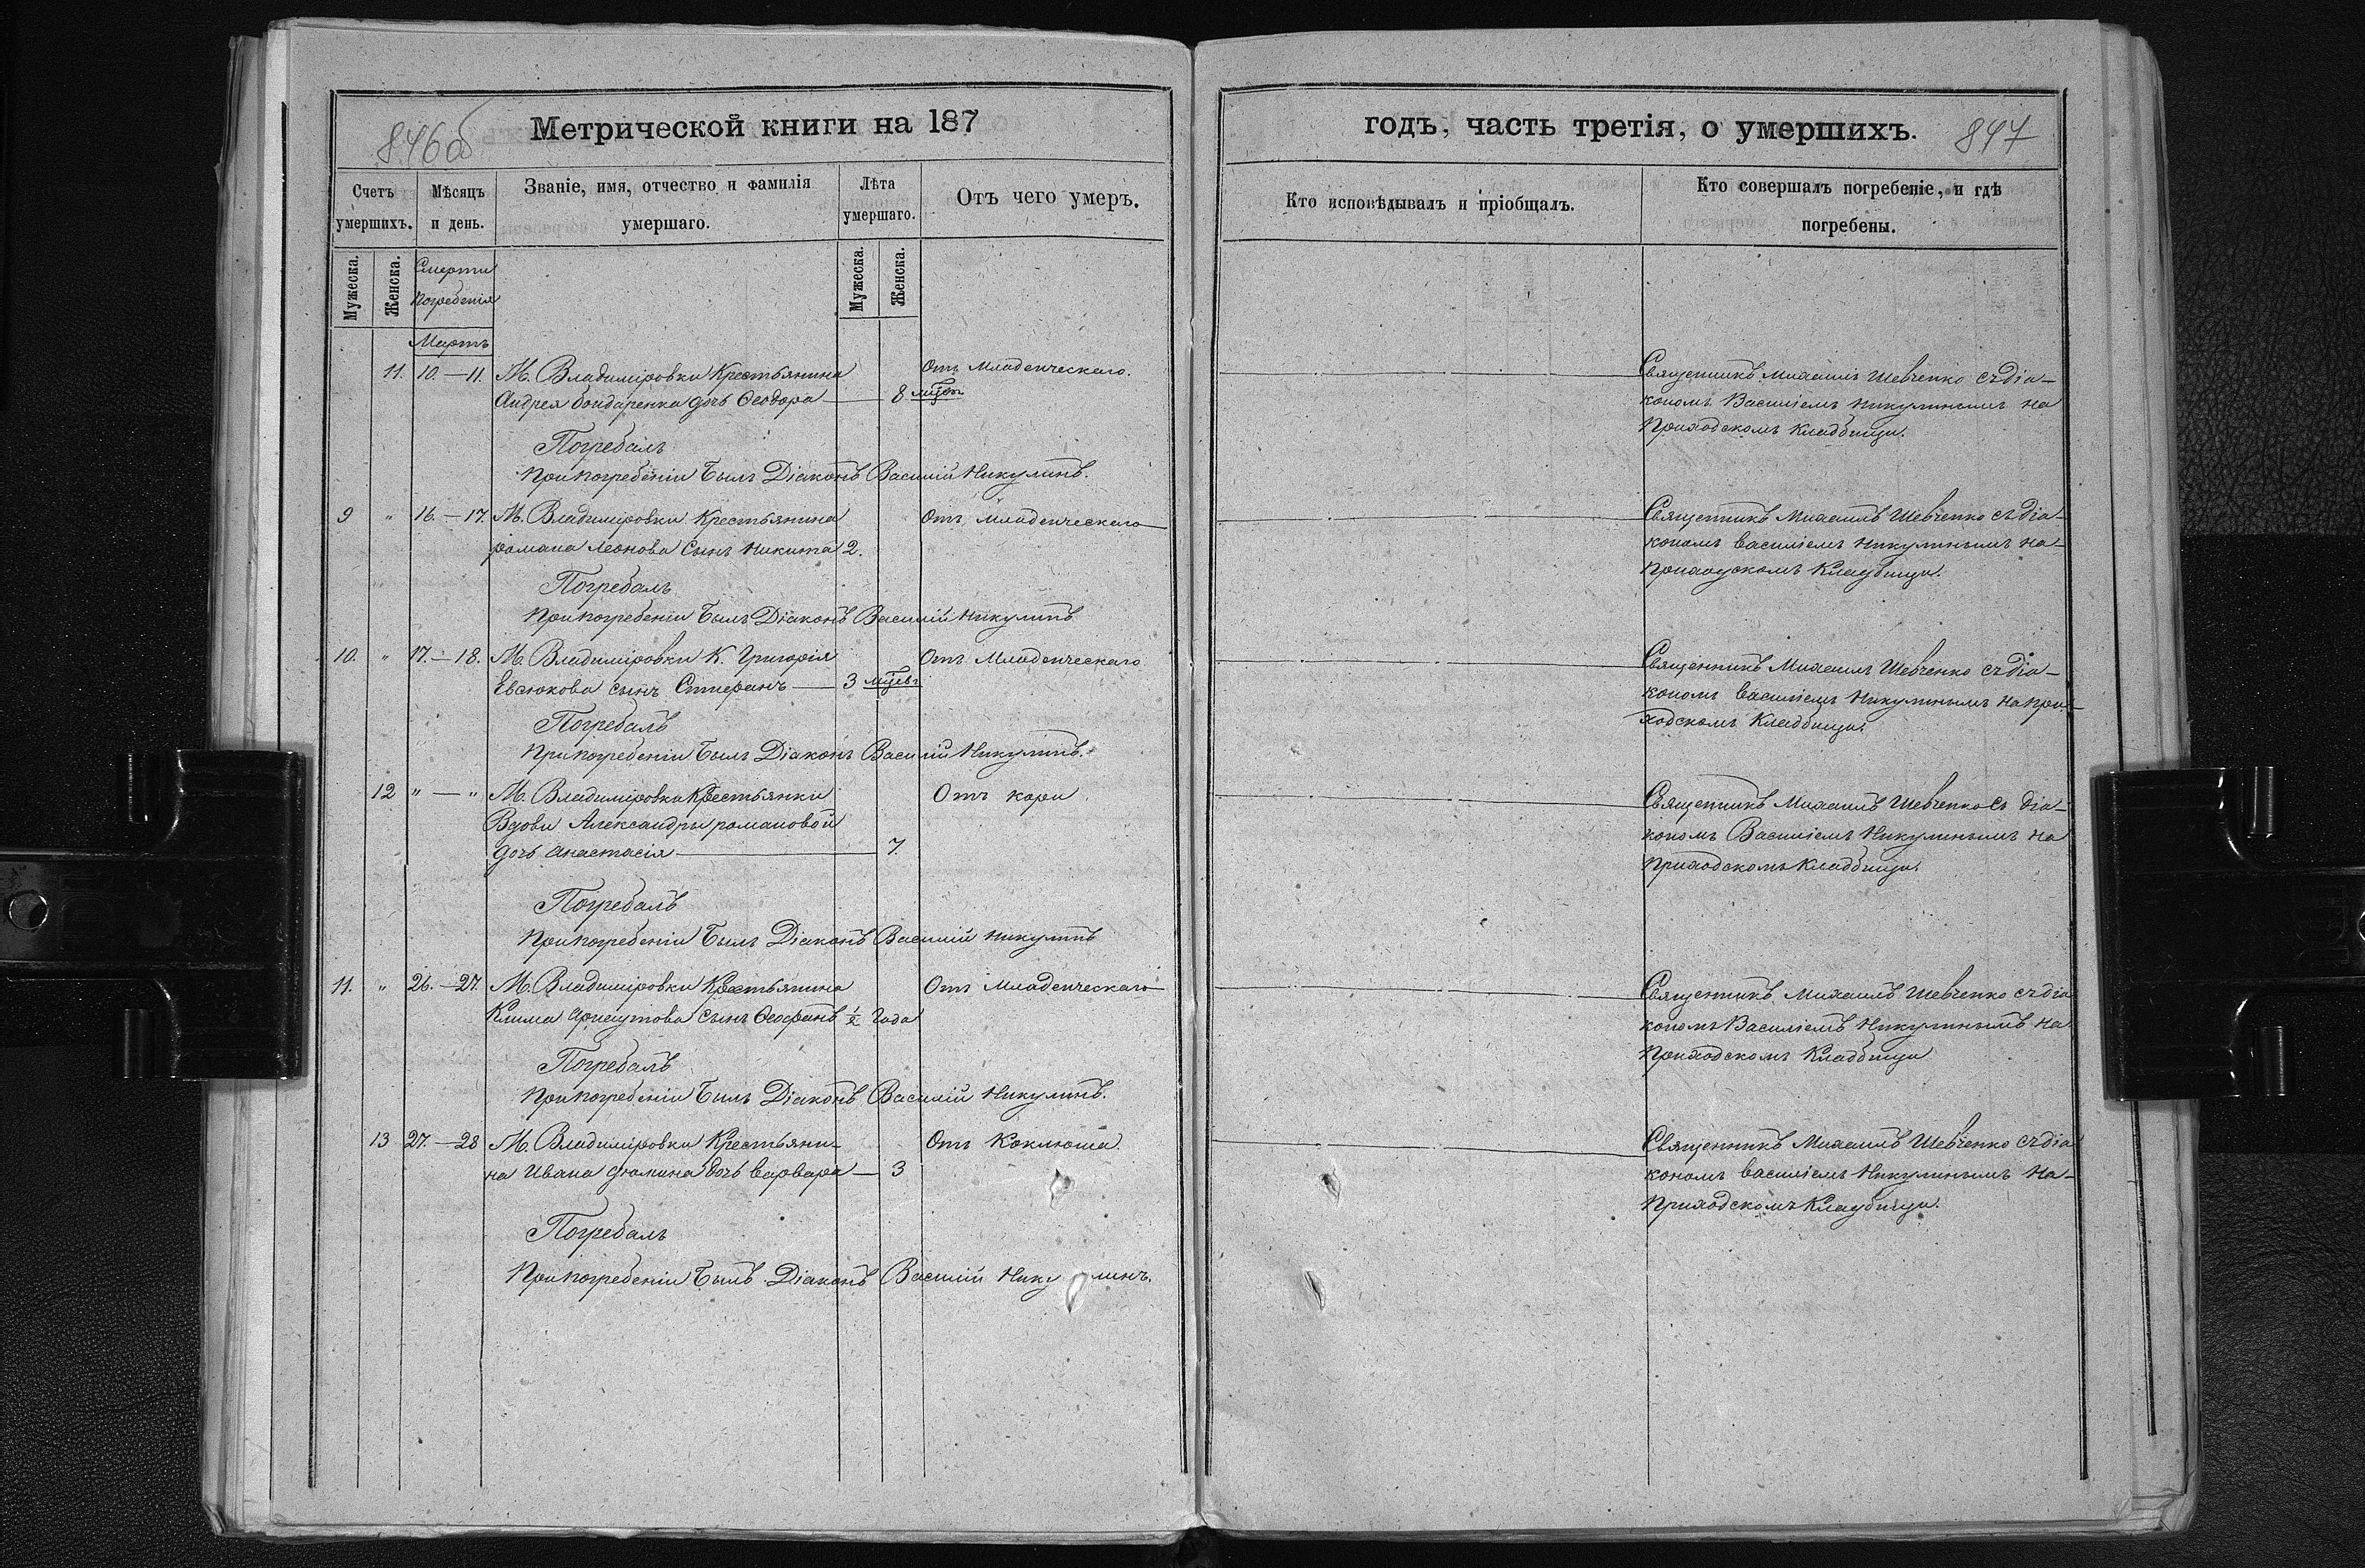 846об
Метрической книги на 187
Счетъ умершихъ.
Мѣсяцъ и день.
Званіе, имя, отчество и фамилія умершаго.
Лѣта умершаго.
Отъ чего умеръ.
Мужеска.
Женска.
Смерти
Погребенія
Мужеска.
Женска.
Мартъ
11. 10.—11. М. Владиміровки Крестьянина Отъ Младенческаго.
Андрея Бондаренка дочь Ѳеодора — 8 мцовъ
Погребалъ
При погребеніи былъ Діаконъ Василій Никулинъ.
9 " 16.—17. М. Владиміровки Крестьянина Отъ Младенческаго
романа Леонова Сынъ Никита 2.
Погребалъ
При погребеніи былъ Діаконъ Василій Никулинъ
10. " 17.—18. М. Владиміровки К. Григорія Отъ Младенческаго
Евсюкова сынъ Стефанъ — 3 мцевъ
Погребалъ
При погребеніи былъ Діаконъ Василій Никулинъ.
12 " — " М. Владиміровки Крестьянки Отъ кори
Вдовы Александры романовой
дочь Анастасія — 7.
Погребалъ
При погребеніи былъ Діаконъ Василій Никулинъ
11. " 26.—27. М. Владиміровки Крестьянина Отъ Младенческаго
Клима сынъ Ѳеофанъ ½ года
Погребалъ
При погребеніи былъ Діаконъ Василій Никулинъ.
13 27.—28 М. Владиміровки Крестьяни- Отъ Коклюша.
на Ивана дочь варвара — 3
Погребалъ
При погребеніи былъ Діаконъ Василій Никулинъ.
годъ, часть третія, о умершихъ. 847
Кто исповѣдывалъ и пріобщалъ.
Кто совершалъ погребеніе, и гдѣ погребены.
Священникъ Михаилъ Шевченко съ діа-
кономъ Василіемъ Никулинымъ на
Приходскомъ Кладбищи.
Священникъ Михаилъ Шевченко съ діа-
кономъ василіемъ Никулинымъ на-
Приходскомъ Кладбищи.
Священникъ Михаилъ Шевченко съ діа-
кономъ василіемъ Никулинымъ на при-
ходскомъ Кладбищи.
Священникъ Михаилъ Шевченко съ діа-
кономъ Василіемъ Никулинымъ на
Приходскомъ Кладбищи.
Священникъ Михаилъ Шевченко съ діа
кономъ Василіемъ Никулинымъ на
Приходскомъ Кладбищи
Священникъ Михаилъ Шевченко съ діа
кономъ василіемъ Никулинымъ на-
Приходскомъ Кладбищи.